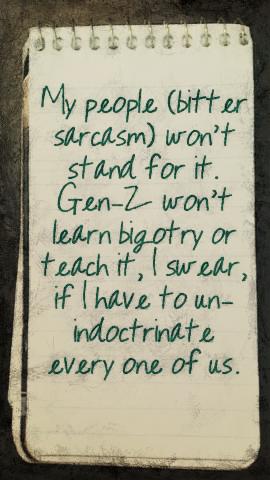 My people (bitter
sarcasm) won't
stand for it.
Gen-Z won't
learn bigotry or
teach it, I swear,
if I have to un-
indoctrinate
every one of us.